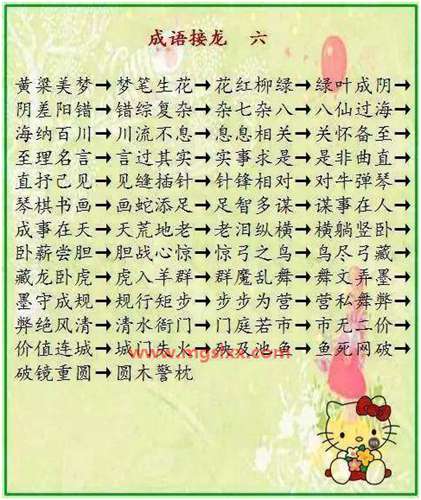 成语接龙 六
黄粱美梦→梦笔生花→花红柳绿→绿叶成阴→
阴差阳错→错综复杂→杂七杂八→八仙过海→
海纳百川→川流不息→息息相关→关怀备至→
至理名言→言过其实→实事求是→是非曲直→
直抒己见→见缝插针→针锋相对→对牛弹琴→
琴棋书画→画蛇添足→足智多谋→谋事在人→
成事在天→天荒地老→老泪纵横→横躺竖卧→
卧薪尝胆→胆战心惊→惊弓之鸟→鸟尽弓藏→
藏龙卧虎→虎入羊群→群魔乱舞→舞文弄墨→
墨守成规→规行矩步→步步为营→营私舞弊→
弊绝风清→清水衙门→门庭若市→市无二价→
价值连城→城门失火→殃及池鱼→鱼死网破→
www.mgsixx.com
破镜重圆→圆木警枕